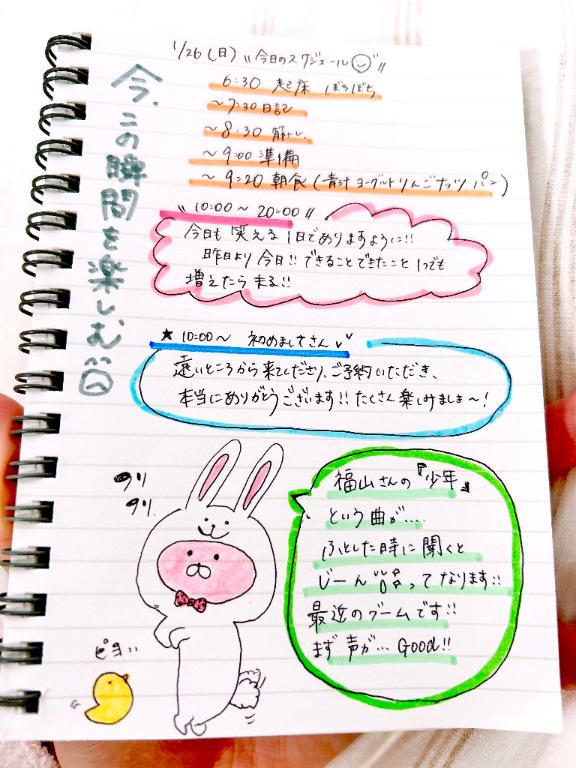 1/26(日) "今日のスケジュール"
6:30 起床 ぼちぼち
~7:30 日記
~8:30 筋トレ
~9:00 準備
~9:20 朝食(青汁 ヨーグルト りんご ナッツ パン)
今、この瞬間を楽しむ
"10:00~20:00"
今日も笑える1日でありますように!!
昨日より今日!!できることできたこと1つでも
増えたら◯!!
★10:00~ 初めましてさん
遠いところから来てくださり、ご予約いただき、
本当にありがとうございます!!たくさん楽しみましょ~!
福山さんの『少年』
という曲が….
ふとした時に聞くと
じーん
ってなります!!
最近のブームです!!
まず 声が… Good!!
プリ
プリ
ピヨ